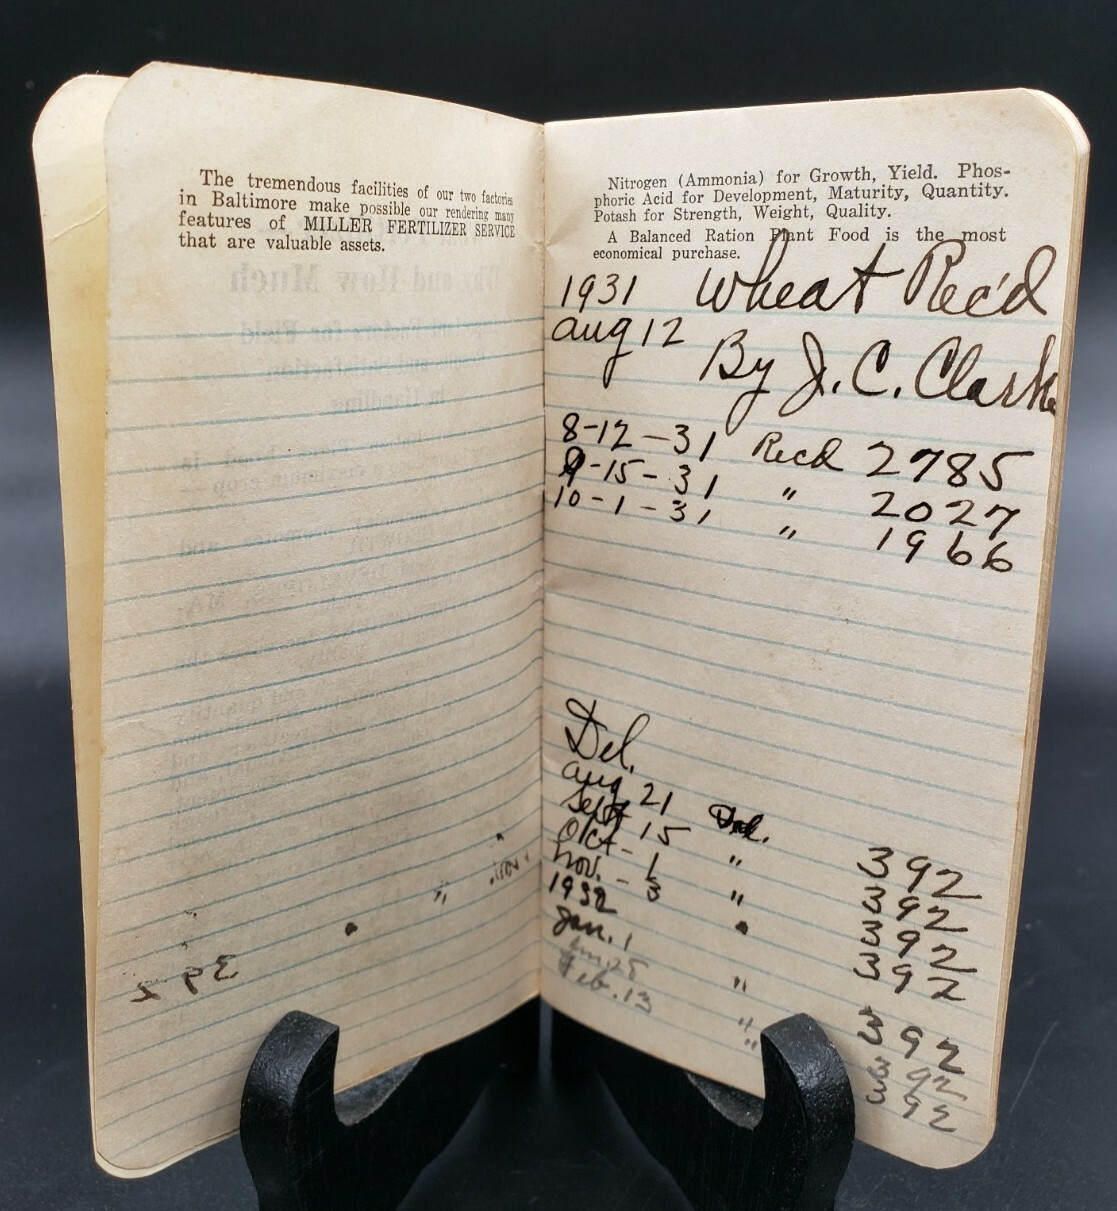 The tremendous facilities of our two factories
in Baltimore make possible our rendering many
features of MILLER FERTILIZER SERVICE
that are valuable assets.
Nitrogen (Ammonia) for Growth, Yield. Phos-
phoric Acid for Development, Maturity, Quantity.
Potash for Strength, Weight, Quality.
A Balanced Ration Plant Food is the most
economical purchase.
1931 Wheat Rec'd
Aug 12 By J. C. Clark
8-12-31 Rec'd 2785
9-15-31 " 2027
10-1-31 " 1966
Del.
Aug 21 Del. 392
Sept 15 " 392
Oct - 1 " 392
Nov. - 3 " 392
1932
Jan. 1 " 392
Jan 25 " 392
Feb. 13 " 392